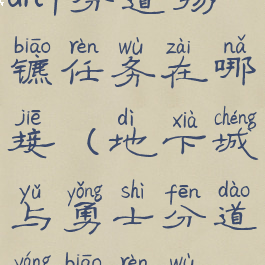 biāo rèn wù zài nǎ
镖任务在哪
jiē dì xià chéng
接(地下城
yǔ yǒng shì fēn dào
与勇士分道
biāo rèn wù